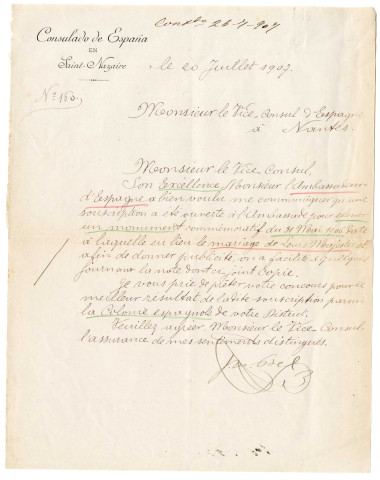 Contdo 26-7-907
Consulado de España
EN
Saint-Nazaire
le 20 Juillet 1907.
Nº 150
Monsieur le Vice Consul d'Espagne
à Nantes.
Monsieur le Vice Consul.
Son Excellence Monsieur l'Ambassadeur
d'Espagne a bien voulu me communiquer qu'une
souscription a été ouverte à l'Ambassade pour
un monument commémoratif du 31 Mai 1906 date
à laquelle eu lieu le mariage de Leurs Majestés et
afin de donner publicité, on a facilité à quelques
journaux la note dont ci joint copie.
Je vous prie de prêter votre concours pour le
meilleur résultat de ladite souscription parmi
la Colonie espagnole de votre District.
Veuillez agréer, Monsieur le Vice Consul
l'assurance de mes sentiments distingués.